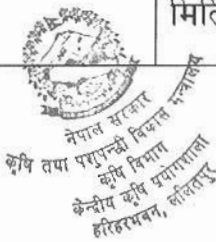 मिति
नेपाल सरकार
कृषि तथा पशुपन्छी विकास मन्त्रालय
कृषि विभाग
केन्द्रीय कृषि प्रयोगशाला
हरिहरभवन, ललितपुर